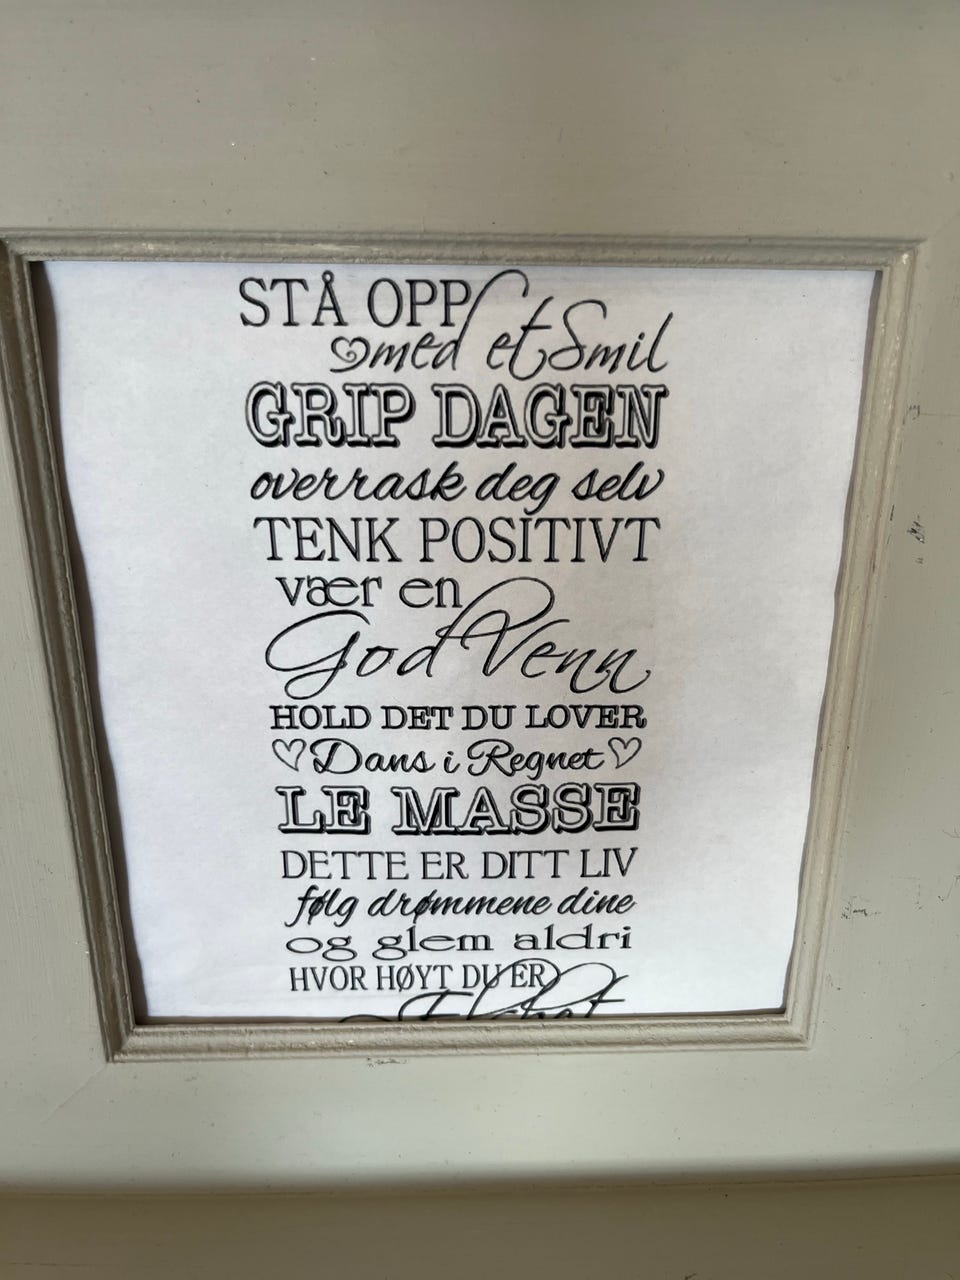 STÅ OPP
med et Smil
GRIP DAGEN
overrask deg selv
TENK POSITIVT
vær en
God Venn
HOLD DET DU LOVER
Dans i Regnet
LE MASSE
DETTE ER DITT LIV
følg drømmene dine
og glem aldri
HVOR HØYT DU ER